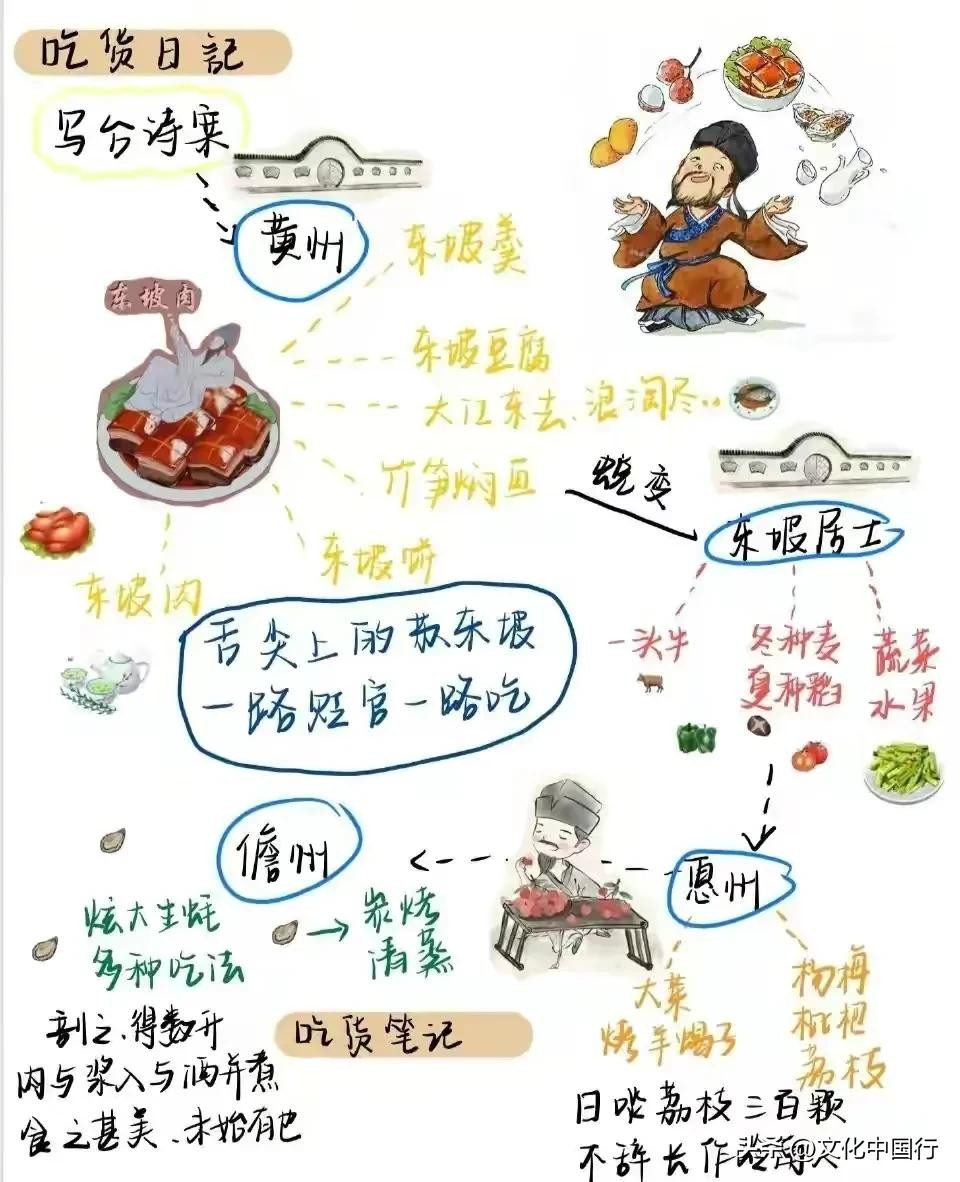 吃货日記
乌台诗案
黄州
东坡羹
东坡肉
东坡豆腐
大江东去、浪淘尽..
竹笋焖鱼
蜕变
东坡居士
东坡饼
东坡肉
舌尖上的苏东坡
一路贬官一路吃
一头牛
冬种麦
夏种稻
蔬菜
水果
惠州
儋州
炫大生蚝
多种吃法
炭烤
清蒸
大菜
烤羊蝎子
杨梅
枇杷
荔枝
剖之、得数升
肉与浆入与酒并煮
食之甚美、未始有也
吃货笔记
日啖荔枝三百颗
不辞长作岭南人
头条@文化中国行